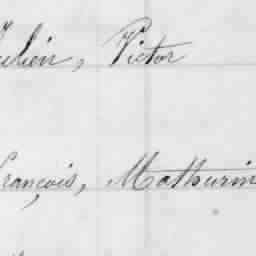 Julien, Victor
François, Mathurin